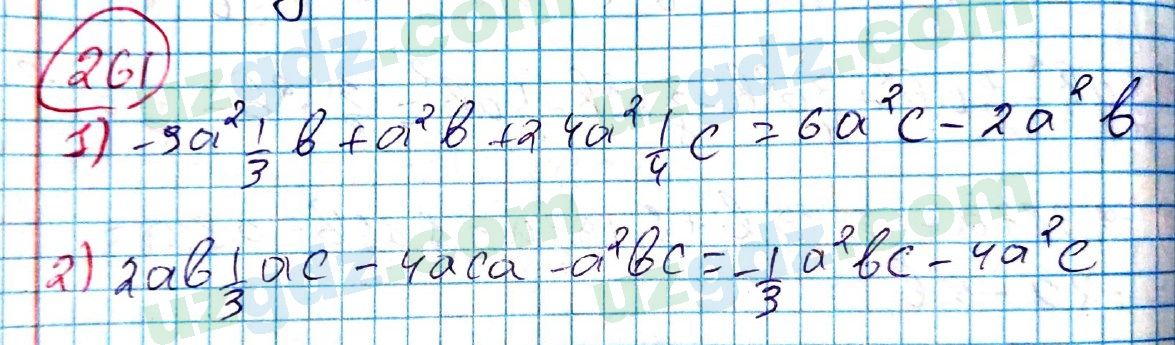 261
1) -9a² 1/3 b + a²b + 24a² 1/4 c = 6a²c - 2a²b
2) 2ab 1/3 ac - 4aca - a²bc = -1/3 a²bc - 4a²c
uzgdz.com
uzgdz.com
uzgdz.com
uzgdz.com